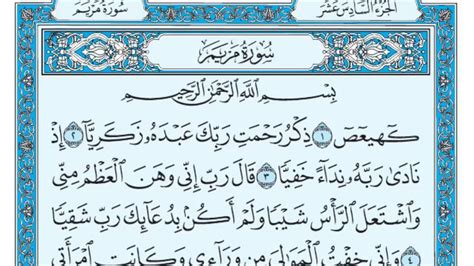 سُورَةُ مَرْيَم
الجُزْءُ السَّادِسَ عَشَرَ
سُورَةُ مَرْيَمَ
بِسْمِ ٱللَّهِ ٱلرَّحْمَٰنِ ٱلرَّحِيمِ
كٓهيعٓصٓ ١ ذِكْرُ رَحْمَتِ رَبِّكَ عَبْدَهُۥ زَكَرِيَّآ ٢ إِذْ
نَادَىٰ رَبَّهُۥ نِدَآءً خَفِيًّا ٣ قَالَ رَبِّ إِنِّى وَهَنَ ٱلْعَظْمُ مِنِّى
وَٱشْتَعَلَ ٱلرَّأْسُ شَيْبًا وَلَمْ أَكُنۢ بِدُعَآئِكَ رَبِّ شَقِيًّا
٤ وَإِنِّى خِفْتُ ٱلْمَوَٰلِىَ مِن وَرَآءِى وَكَانَتِ ٱمْرَأَتِى